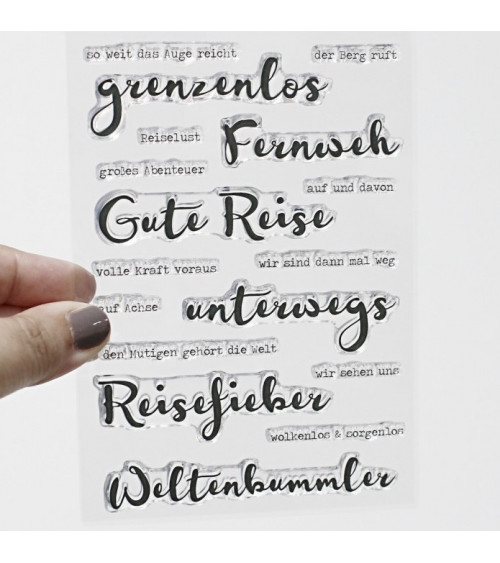 so weit das Auge reicht
der Berg ruft
grenzenlos
Reiselust
Fernweh
großes Abenteuer
auf und davon
Gute Reise
volle Kraft voraus
wir sind dann mal weg
auf Achse
unterwegs
den Mutigen gehört die Welt
wir sehen uns
Reisefieber
wolkenlos & sorgenlos
Weltenbummler